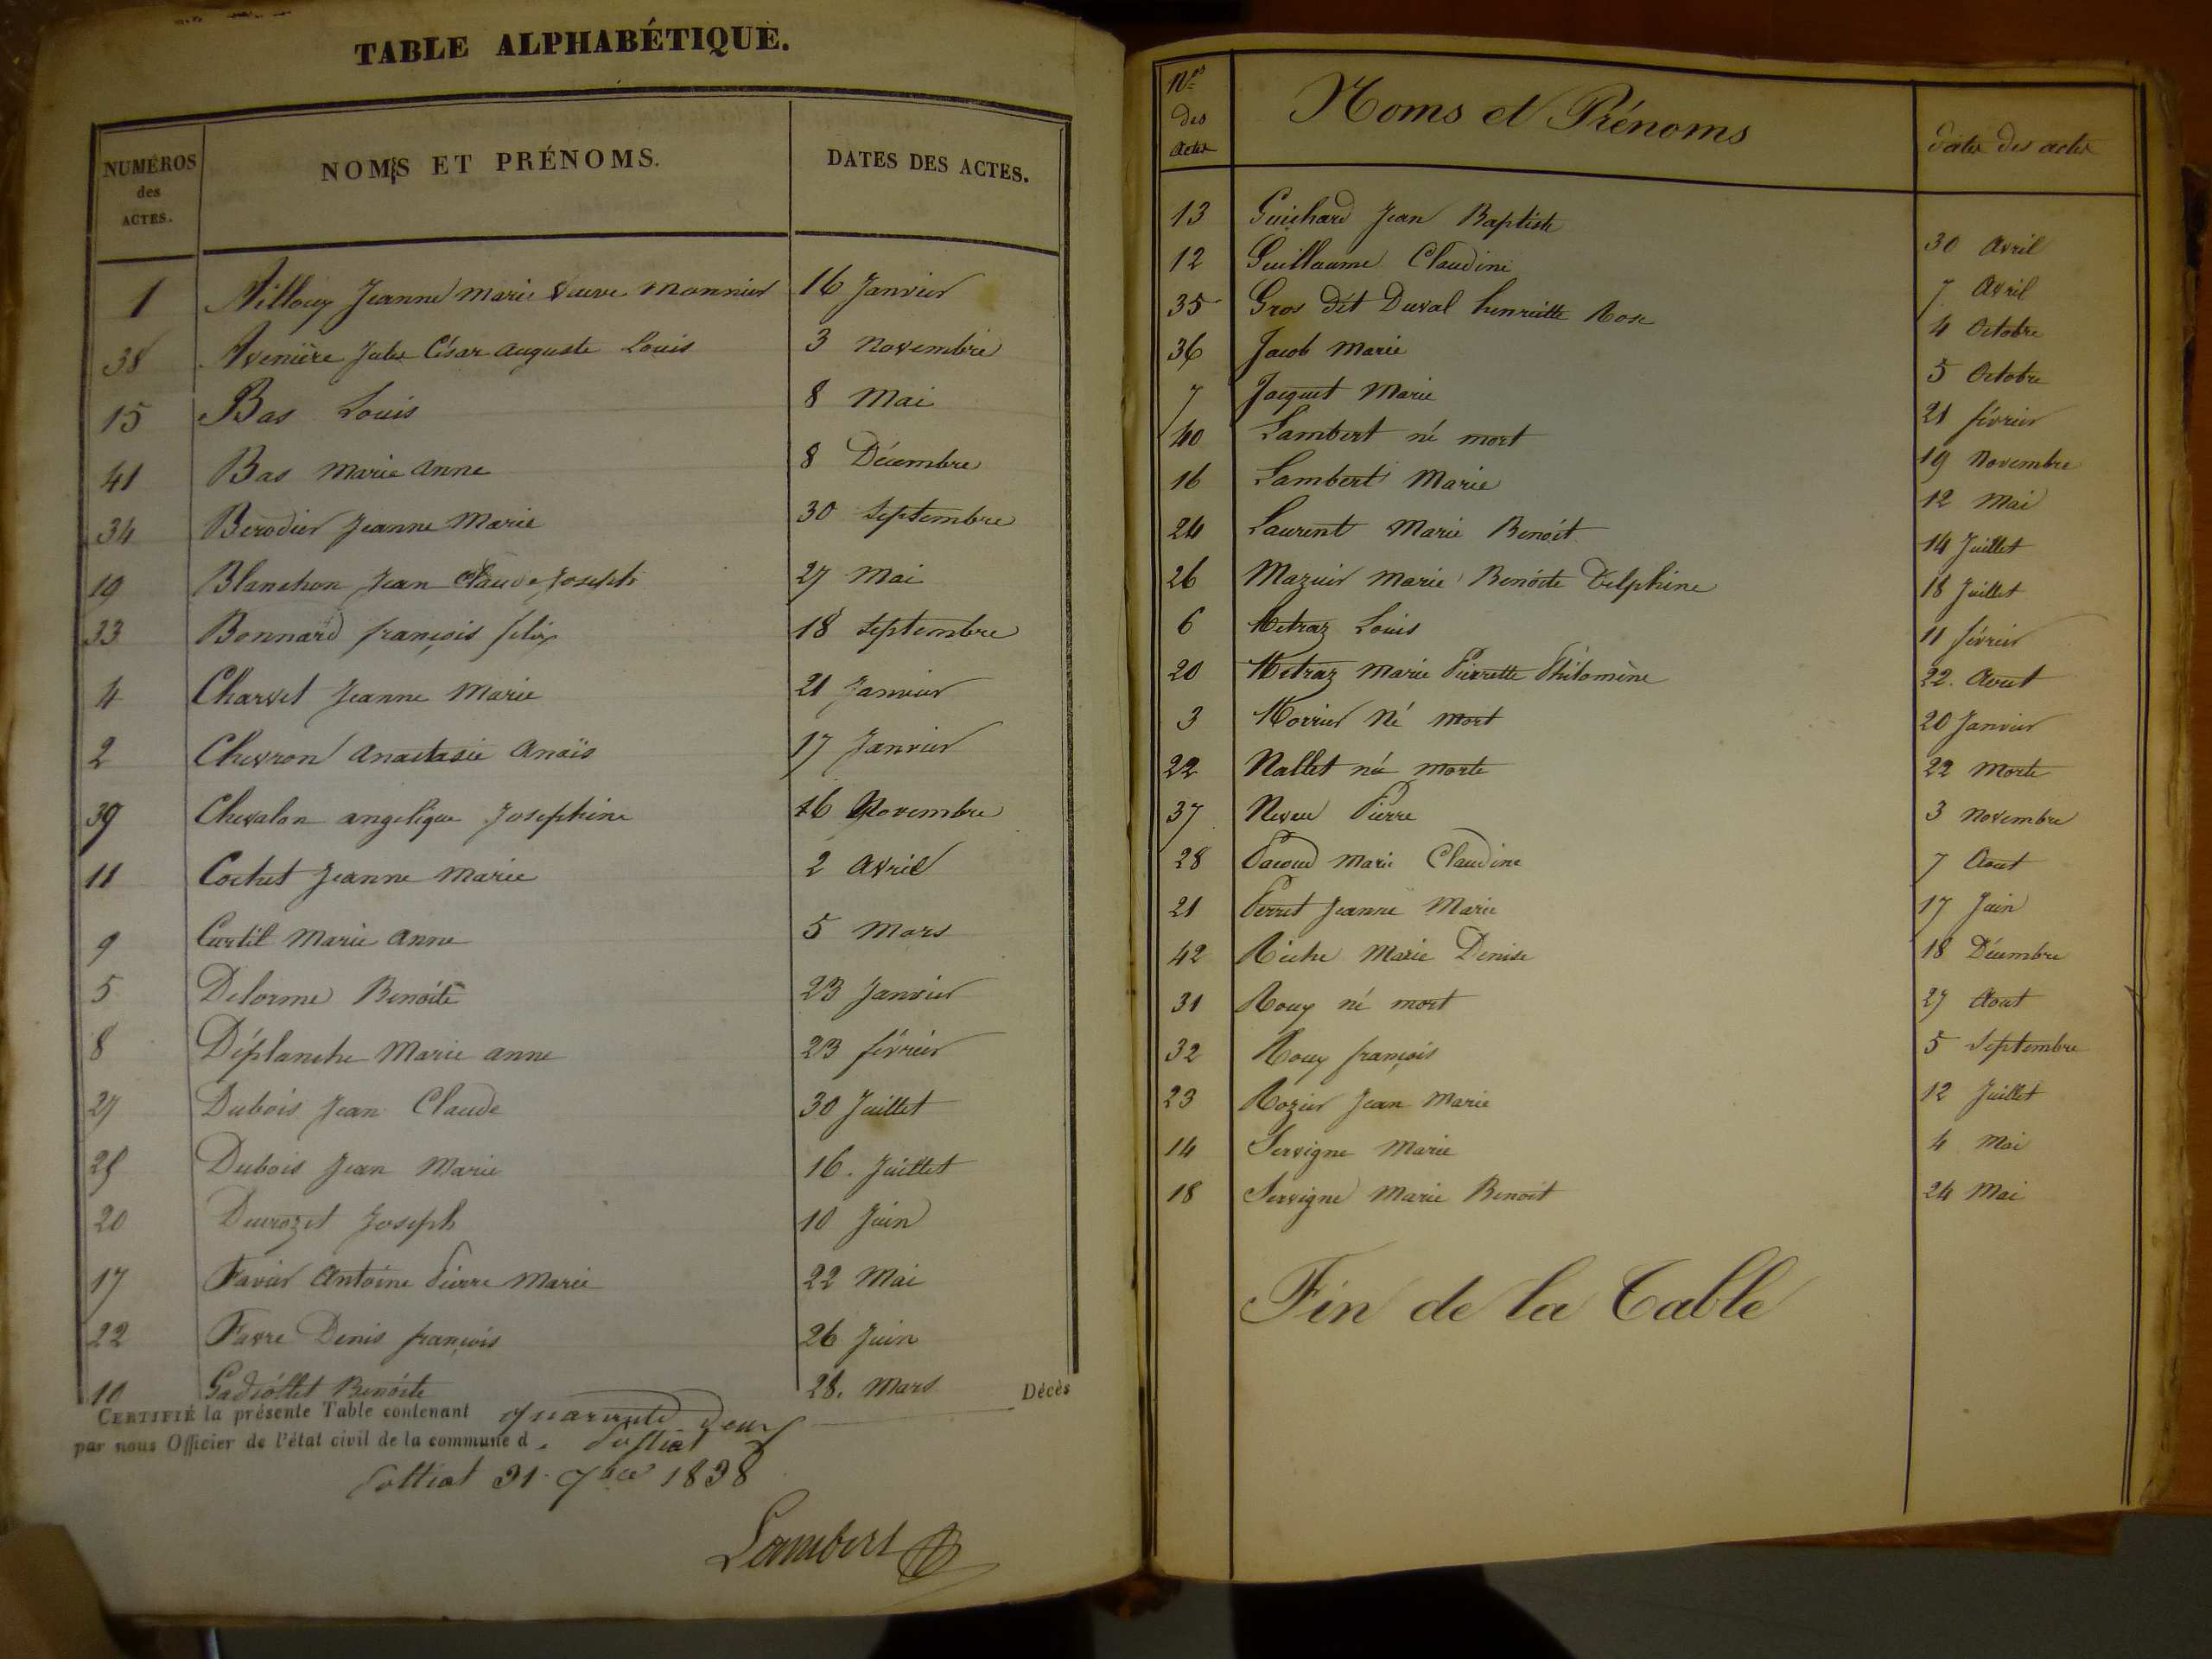 TABLE ALPHABÉTIQUE.
NUMÉROS des ACTES. NOMS ET PRÉNOMS. DATES DES ACTES.
1 Jeanne marie veuve monnier 16 Janvier
38 Avenière Jules César auguste Louis 3 novembre
15 Bas Louis 8 Mai
41 Bas marie anne 8 Décembre
34 Berodier Jeanne Marie 30 septembre
19 Blanchon Jean Claude Joseph 27 Mai
33 Bonnard françois félix 18 septembre
4 Charvet Jeanne Marie 21 Janvier
2 Chevron anastasie anaïs 17 Janvier
39 Chevalon angelique Josephine 16 Novembre
11 Cochet Jeanne marie 2 avril
9 Curtil Marie anne 5 Mars
5 Delorme Benoîte 23 Janvier
8 Déplanche Marie anne 23 février
27 Dubois Jean Claude 30 Juillet
25 Dubois Jean Marie 16. Juillet
20 Duvozet Joseph 10 Juin
17 Favier Antoine Pierre Marie 22 Mai
22 Favre Denis françois 26 Juin
10 Gadiollet Benoîte 28. Mars
CERTIFIÉ la présente Table contenant quarante deux Décès
par nous Officier de l'état civil de la commune d
31 1838
Lambert
Nos des actes Noms et Prénoms dates des actes
13 Guichard Jean Baptiste 30 avril
12 Guillaume Claudine 7 avril
35 Gros dit Duval henriette Rose 4 Octobre
36 Jacob Marie 5 Octobre
7 Jacquet Marie 21 février
40 Lambert né mort 19 Novembre
16 Lambert Marie 12 Mai
24 Laurent Marie Benoit 14 Juillet
26 Mazuir marie Benoîte Delphine 18 Juillet
6 Metraz Louis 11 février
20 Metraz Marie Pierrette Philomène 22. Aout
3 Morrier Né mort 20 Janvier
22 Nallet née morte 22 Morte
37 Neveu Pierre 3 novembre
28 Pacoud Marie Claudine 7 Aout
21 Perret Jeanne Marie 17 Juin
42 Riche Marie Denise 18 Décembre
31 Roux né mort 27 Aout
32 Roux françois 5 Septembre
23 Rozier Jean Marie 12 Juillet
14 Servigne Marie 4 Mai
18 Servigne Marie Benoit 24 Mai
Fin de la Table